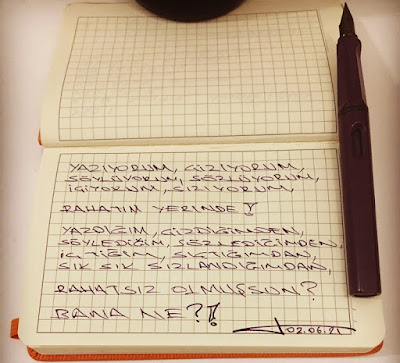 YAZIYORUM, ÇİZİYORUM,
SÖYLÜYORUM, SEZLÜYORUM,
İÇİYORUM, SIZIYORUM,
RAHATIM YERİNDE!
YAZDIĞIM, ÇİZDİĞİMDEN,
SÖYLEDİĞİM, SEZLEDİĞİMDEN,
İÇTİĞİM, SIÇTIĞIMDAN,
SIK SIK SIZLANDIĞIMDAN,
RAHATSIZ OLMUŞSUN?
BANA NE?!
02.06.21